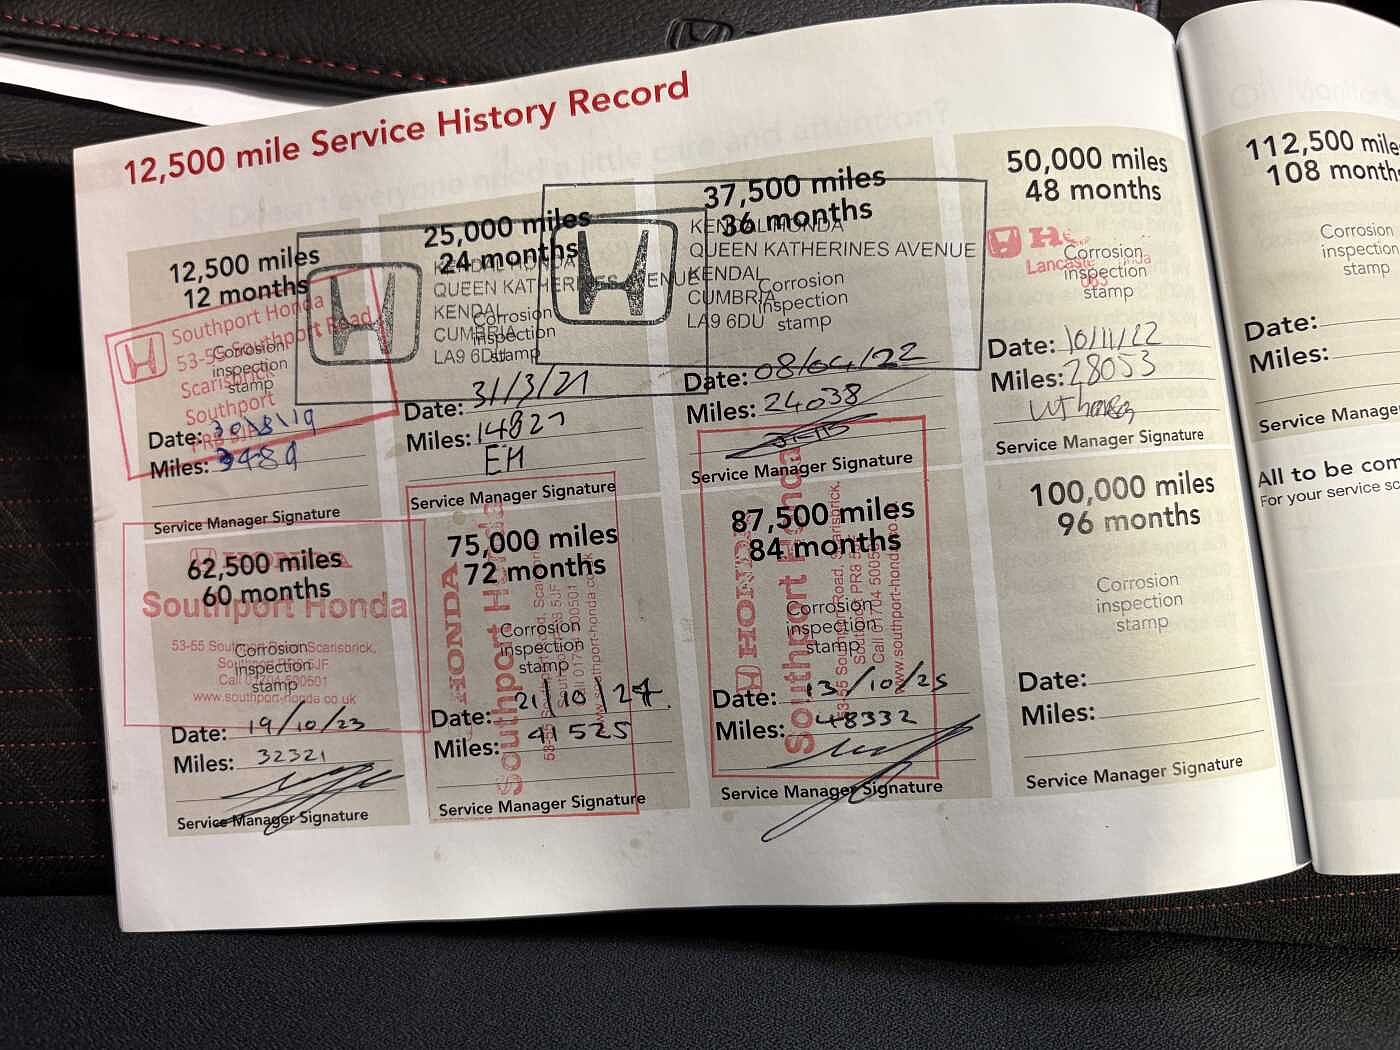 12,500 mile Service History Record
12,500 miles
12 months
Southport Honda
53-55 Southport Road
Scarisbrick
Southport
Corrosion
inspection
stamp
Date: 30/8/19
Miles: 3489
Service Manager Signature
25,000 miles
24 months
KENDAL HONDA
QUEEN KATHERINES AVENUE
KENDAL
CUMBRIA
LA9 6DU
Corrosion
inspection
stamp
Date: 31/3/21
Miles: 14827
EM
Service Manager Signature
37,500 miles
36 months
KENDAL HONDA
QUEEN KATHERINES AVENUE
KENDAL
CUMBRIA
LA9 6DU
Corrosion
inspection
stamp
Date: 08/04/22
Miles: 24038
Service Manager Signature
50,000 miles
48 months
Corrosion
inspection
stamp
Date: 10/11/22
Miles: 28053
Service Manager Signature
112,500 miles
108 months
Corrosion
inspection
stamp
Date:
Miles:
Service Manager
62,500 miles
60 months
HONDA
Southport Honda
53-55 Southport Road, Scarisbrick,
Corrosion
inspection
stamp
www.southport-honda.co.uk
Date: 19/10/23
Miles: 32321
Service Manager Signature
75,000 miles
72 months
HONDA
Southport Honda
Corrosion
inspection
stamp
Date: 21/10/24
Miles: 41525
Service Manager Signature
87,500 miles
84 months
HONDA
Southport Honda
53-55 Southport Road, Scarisbrick,
Corrosion
inspection
stamp
Date: 13/10/25
Miles: 48332
Service Manager Signature
100,000 miles
96 months
Corrosion
inspection
stamp
Date:
Miles:
Service Manager Signature
All to be com
For your service sc